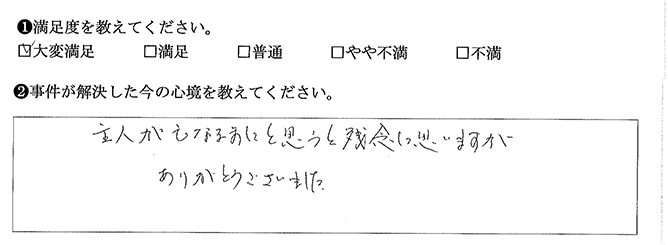 ❶満足度を教えてください。
☑大変満足 □満足 □普通 □やや不満 □不満
❷事件が解決した今の心境を教えてください。
主人がもなるまえにと思うと残念に思いますが
ありがとうございました